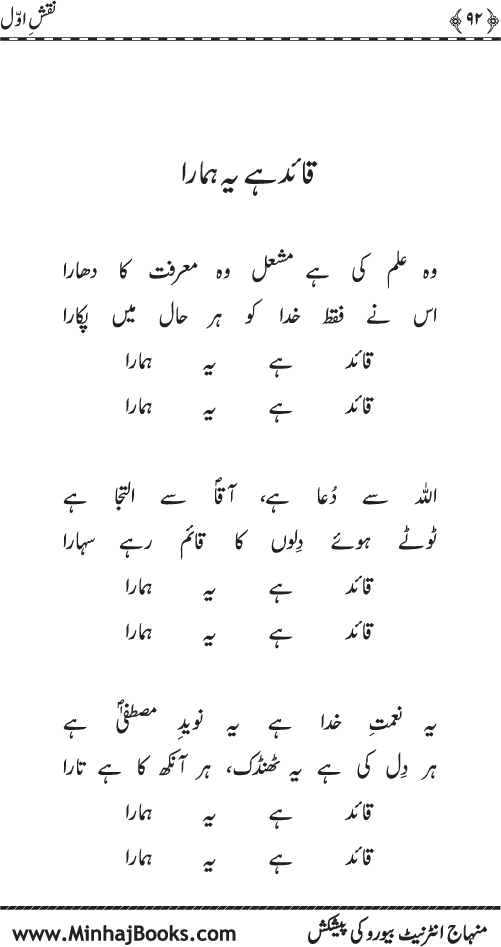 ﴿ ۹۲ ﴾ نقشِ اوّل
قائد ہے یہ ہمارا
وہ علم کی ہے مشعل وہ معرفت کا دھارا
اس نے فقط خدا کو ہر حال میں پکارا
قائد ہے یہ ہمارا
قائد ہے یہ ہمارا
اللہ سے دُعا ہے، آقاؐ سے التجا ہے
ٹوٹے ہوئے دِلوں کا قائم رہے سہارا
قائد ہے یہ ہمارا
قائد ہے یہ ہمارا
یہ نعمتِ خدا ہے یہ نویدِ مصطفیٰؐ ہے
ہر دِل کی ہے یہ ٹھنڈک، ہر آنکھ کا ہے تارا
قائد ہے یہ ہمارا
قائد ہے یہ ہمارا
منہاج انٹرنیٹ بیورو کی پیشکش www.MinhajBooks.com